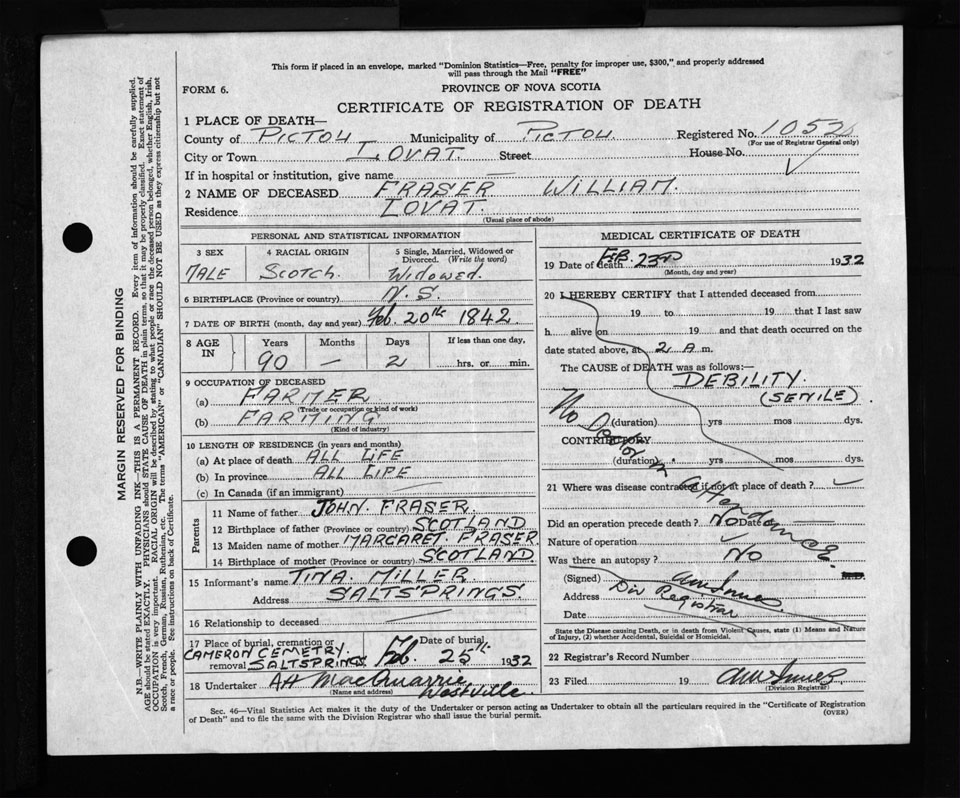 This form if placed in an envelope, marked "Dominion Statistics—Free, penalty for improper use, $300," and properly addressed
will pass through the Mail "FREE"
FORM 6.
PROVINCE OF NOVA SCOTIA
CERTIFICATE OF REGISTRATION OF DEATH
1 PLACE OF DEATH—
County of PICTOU Municipality of PICTOU Registered No. 1052
(For use of Registrar General only)
City or Town LOVAT. Street House No.
If in hospital or institution, give name —
2 NAME OF DECEASED FRASER WILLIAM.
Residence LOVAT.
(Usual place of abode)
PERSONAL AND STATISTICAL INFORMATION
3 SEX 4 RACIAL ORIGIN 5 Single, Married, Widowed or
Divorced. (Write the word)
MALE SCOTCH. WIDOWED.
6 BIRTHPLACE (Province or country) N.S.
7 DATE OF BIRTH (month, day and year) Feb. 20th 1842.
8 AGE IN Years Months Days If less than one day,
90 — 2 hrs. or min.
9 OCCUPATION OF DECEASED
(a) FARMER
(Trade or occupation or kind of work)
(b) FARMING
(Kind of industry)
10 LENGTH OF RESIDENCE (in years and months)
(a) At place of death ALL LIFE
(b) In province ALL LIFE
(c) In Canada (if an immigrant)
Parents
11 Name of father JOHN. FRASER.
12 Birthplace of father (Province or country) SCOTLAND
13 Maiden name of mother MARGARET. FRASER
14 Birthplace of mother (Province or country) SCOTLAND.
15 Informant's name TINA. MILLER
Address SALTSPRINGS.
16 Relationship to deceased
17 Place of burial, cremation or removal Date of burial
CAMERON CEMETRY. SALTSPRINGS Feb. 25th 1932
18 Undertaker AH MacQuarrie
(Name and address) Westville
MEDICAL CERTIFICATE OF DEATH
19 Date of death FEB. 23RD 1932
(Month, day and year)
20 I HEREBY CERTIFY that I attended deceased from
19 to 19 that I last saw
h alive on 19 and that death occurred on the
date stated above, at 2 A m.
The CAUSE of DEATH was as follows:—
DEBILITY.
(SENILE)
No Doctor in attendance.
(duration) yrs mos dys.
CONTRIBUTORY
(duration) yrs mos dys.
21 Where was disease contracted if not at place of death?
Did an operation precede death? NO Date
Nature of operation
Was there an autopsy? NO
(Signed) AW Innes
Address Div Registrar
Date
State the Disease causing Death, or in death from Violent Causes, state (1) Means and Nature
of Injury, (2) whether Accidental, Suicidal or Homicidal.
22 Registrar's Record Number
23 Filed 19 AW Innes
(Division Registrar)
Sec. 46—Vital Statistics Act makes it the duty of the Undertaker or person acting as Undertaker to obtain all the particulars required in the "Certificate of Registration
of Death" and to file the same with the Division Registrar who shall issue the burial permit.
(OVER)
MARGIN RESERVED FOR BINDING
N.B.—WRITE PLAINLY WITH UNFADING INK—THIS IS A PERMANENT RECORD. Every item of information should be carefully supplied.
AGE should be stated EXACTLY. PHYSICIANS should STATE CAUSE OF DEATH in plain terms, so that it may be properly classified. Exact statement of
OCCUPATION is very important. RACIAL ORIGIN will be described by stating to what people or race the deceased person belonged, whether English, Irish,
Scotch, French, German, Russian, Ruthenian, etc. The terms "AMERICAN" or "CANADIAN" SHOULD NOT BE USED as they express citizenship but not
a race or people. See instructions on back of Certificate.